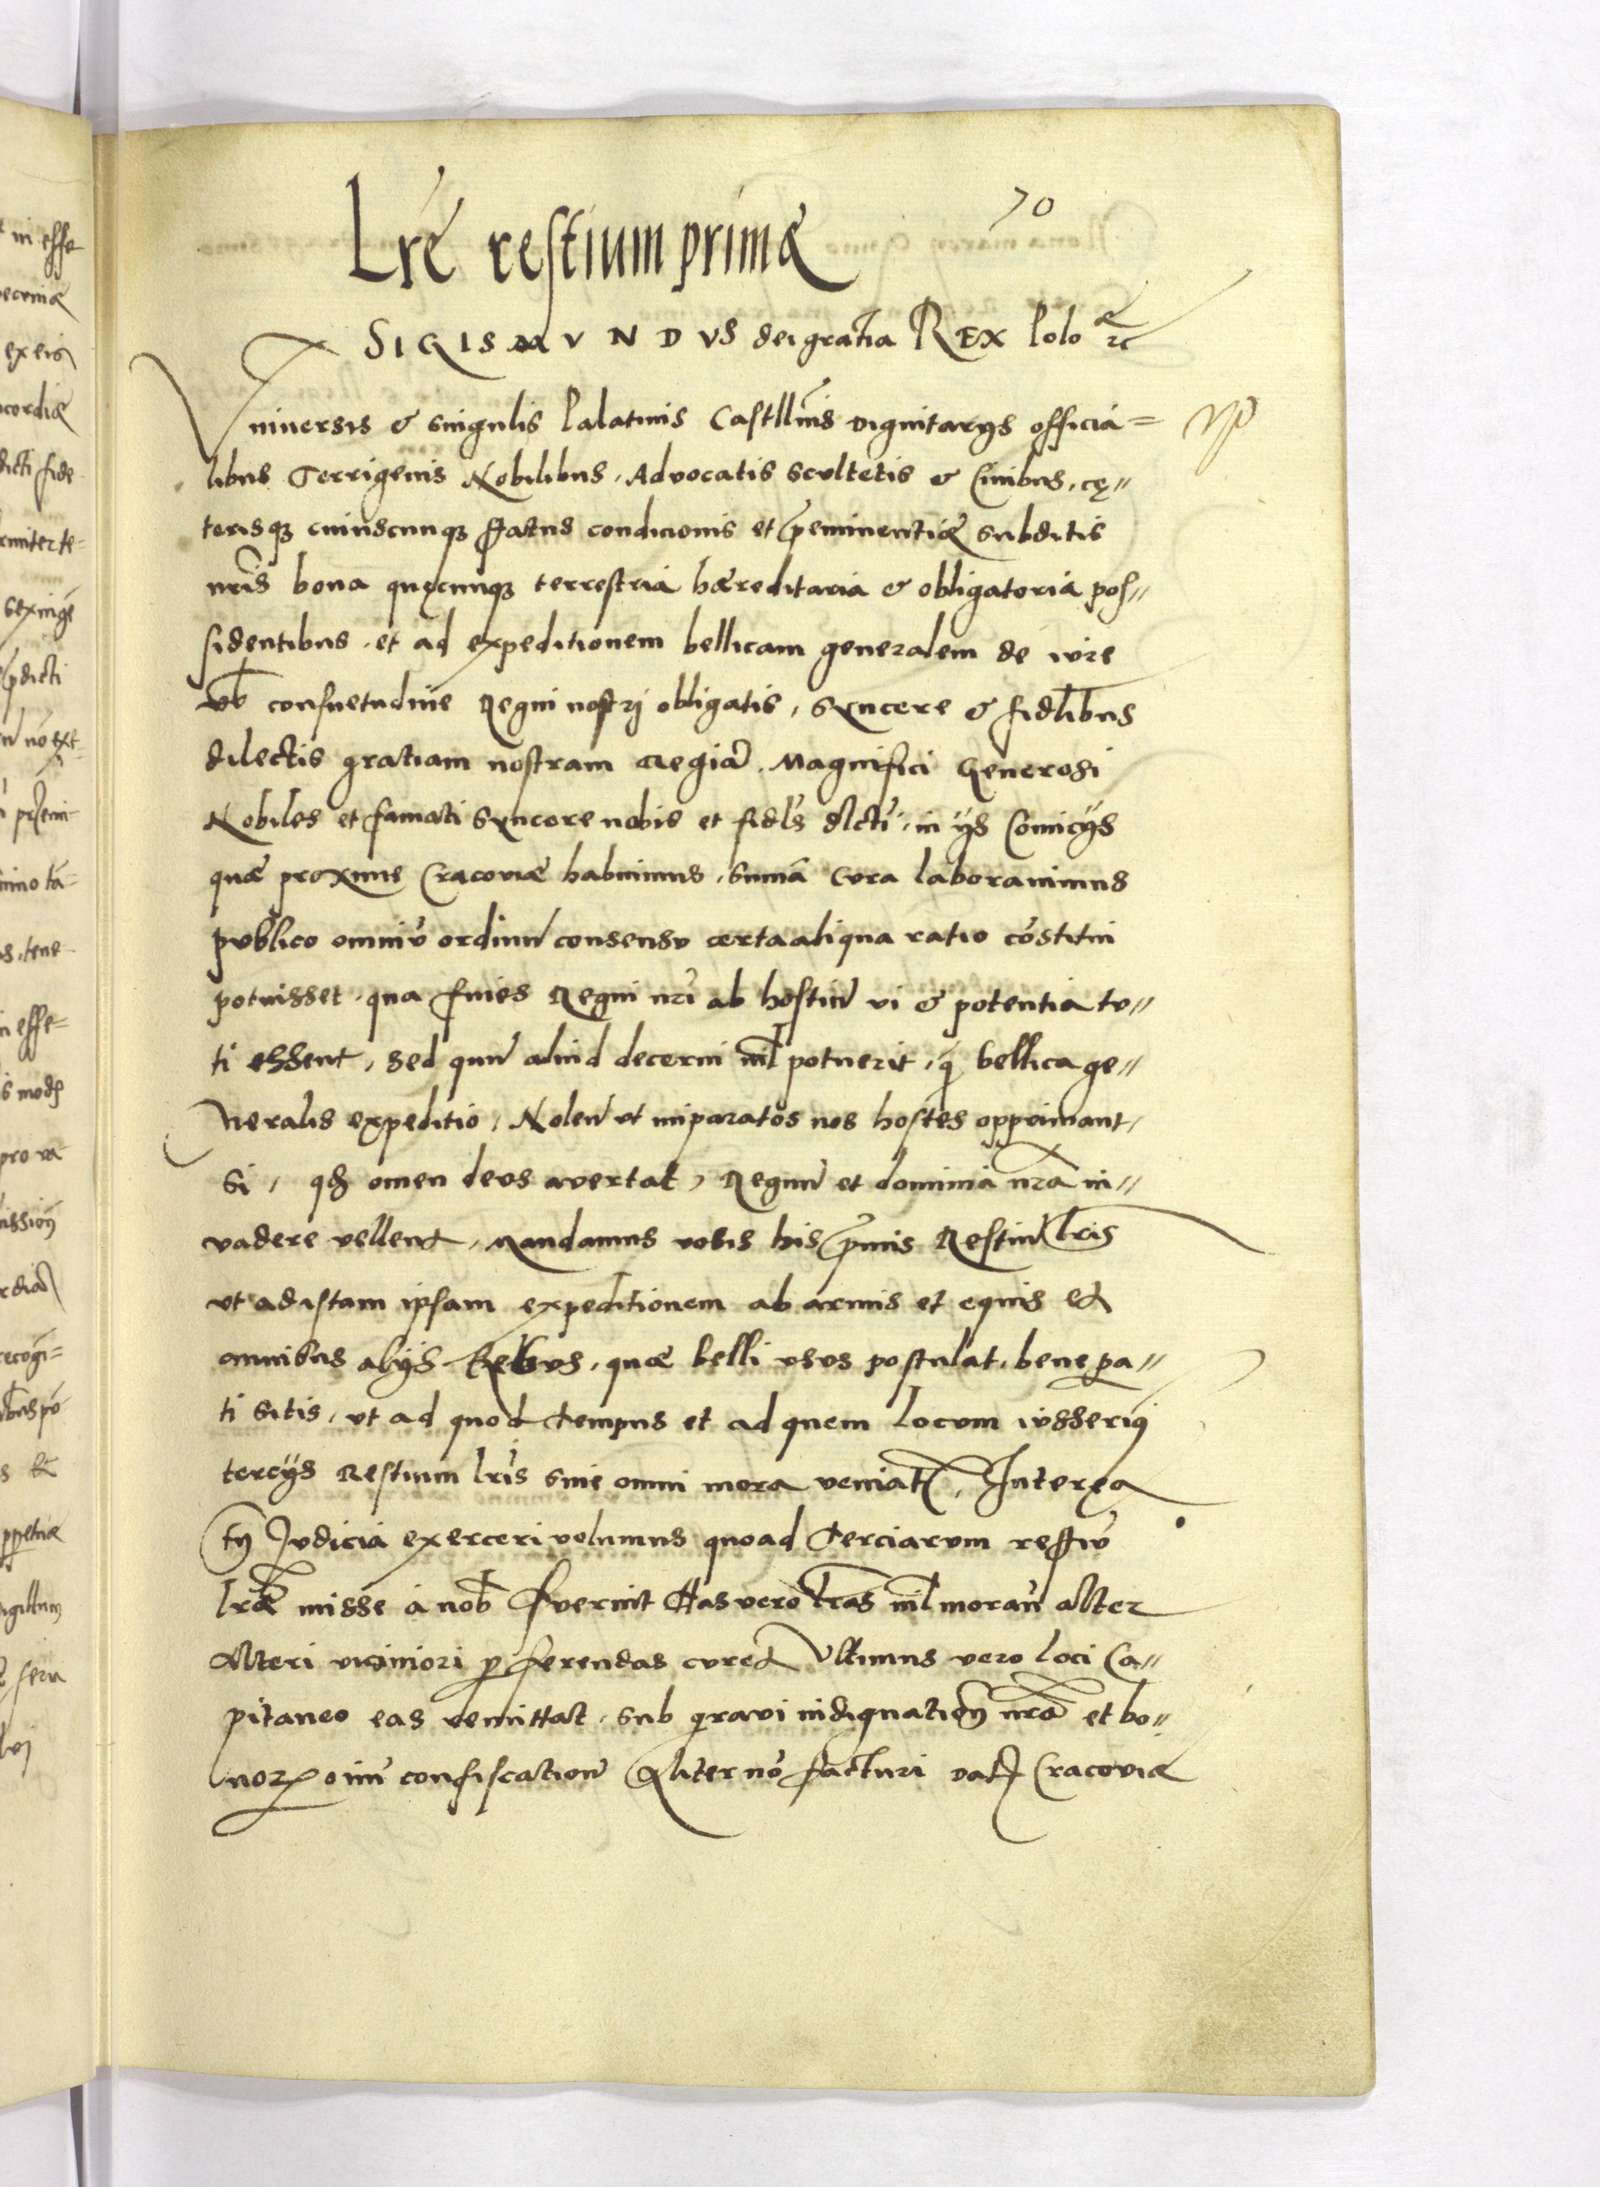 70
Lrẽ restium primæ
SIGISMVNDVS dei gratia REX Polo⁹ &c
Vniversis & singulis Palatinis Castllñis dignitarijs officia=
libus Terrigenis Nobilibus, Advocatis scultetis & Civibus, cę=
terisqȝ cuiuscunqȝ status condicionis et p̃eminentiæ subditis
nr̃is bona quęcunqȝ terrestria hæreditaria & obligatoria pos=
sidentibus, et ad expeditionem bellicam generalem de iure
vł consuetudine Regni nostri obligatis, syncere & fidelibus
dilectis gratiam nostram Regiã. Magnifici Generosi
Nobiles et famati syncere nobis et fidls dlcti, in ijs Comicijs
quæ proxime Cracoviæ habuimus, sumã cura laboravimus
publico omniũ ordinũ consensu certa aliqua ratio cõstitui
potuisset, qua fines Regni nr̃i ab hostiũ vi & potentia tu=
ti essent, sed quũ aliud decerni nil potuerit, q̃ bellica ge=
neralis expeditio, Nolen̄ vt imparatos nos hostes opprimant,
si, qđ omen deus avertat, Regnũ et dominia nr̃a in=
vadere vellent, Mandamus vobis his p̃mis Restiũ lr̃is
vt ad istam ipsam expeditionem ab armis et equis et
omnibus alijs Rebus, quæ belli usus postulat, bene pa=
ti sitis, vt ad quod tempus et ad quem locum iusserimꝰ
tercijs Restium lr̃is sine omni mora veniatꝭ, Interea
tñ Judicia exerceri volumus quoad Terciarum restiũ
lr̃æ misse à nob̃ fuerint Has vero lr̃as nil moran̄ alter
alteri viciniori p̱ferendas curet Vltimus vero loci Ca=
pitaneo eas remittat, sub gravi indignatioñ nr̃a et bo=
noꝝ oĩm confiscation̄ Aliter nõ facturi datꝭ Cracoviæ